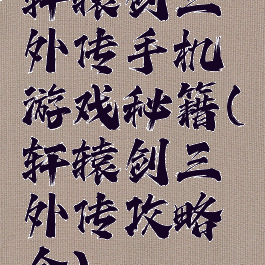 轩辕剑三
外传手机
游戏秘籍(
轩辕剑三
外传攻略
全)